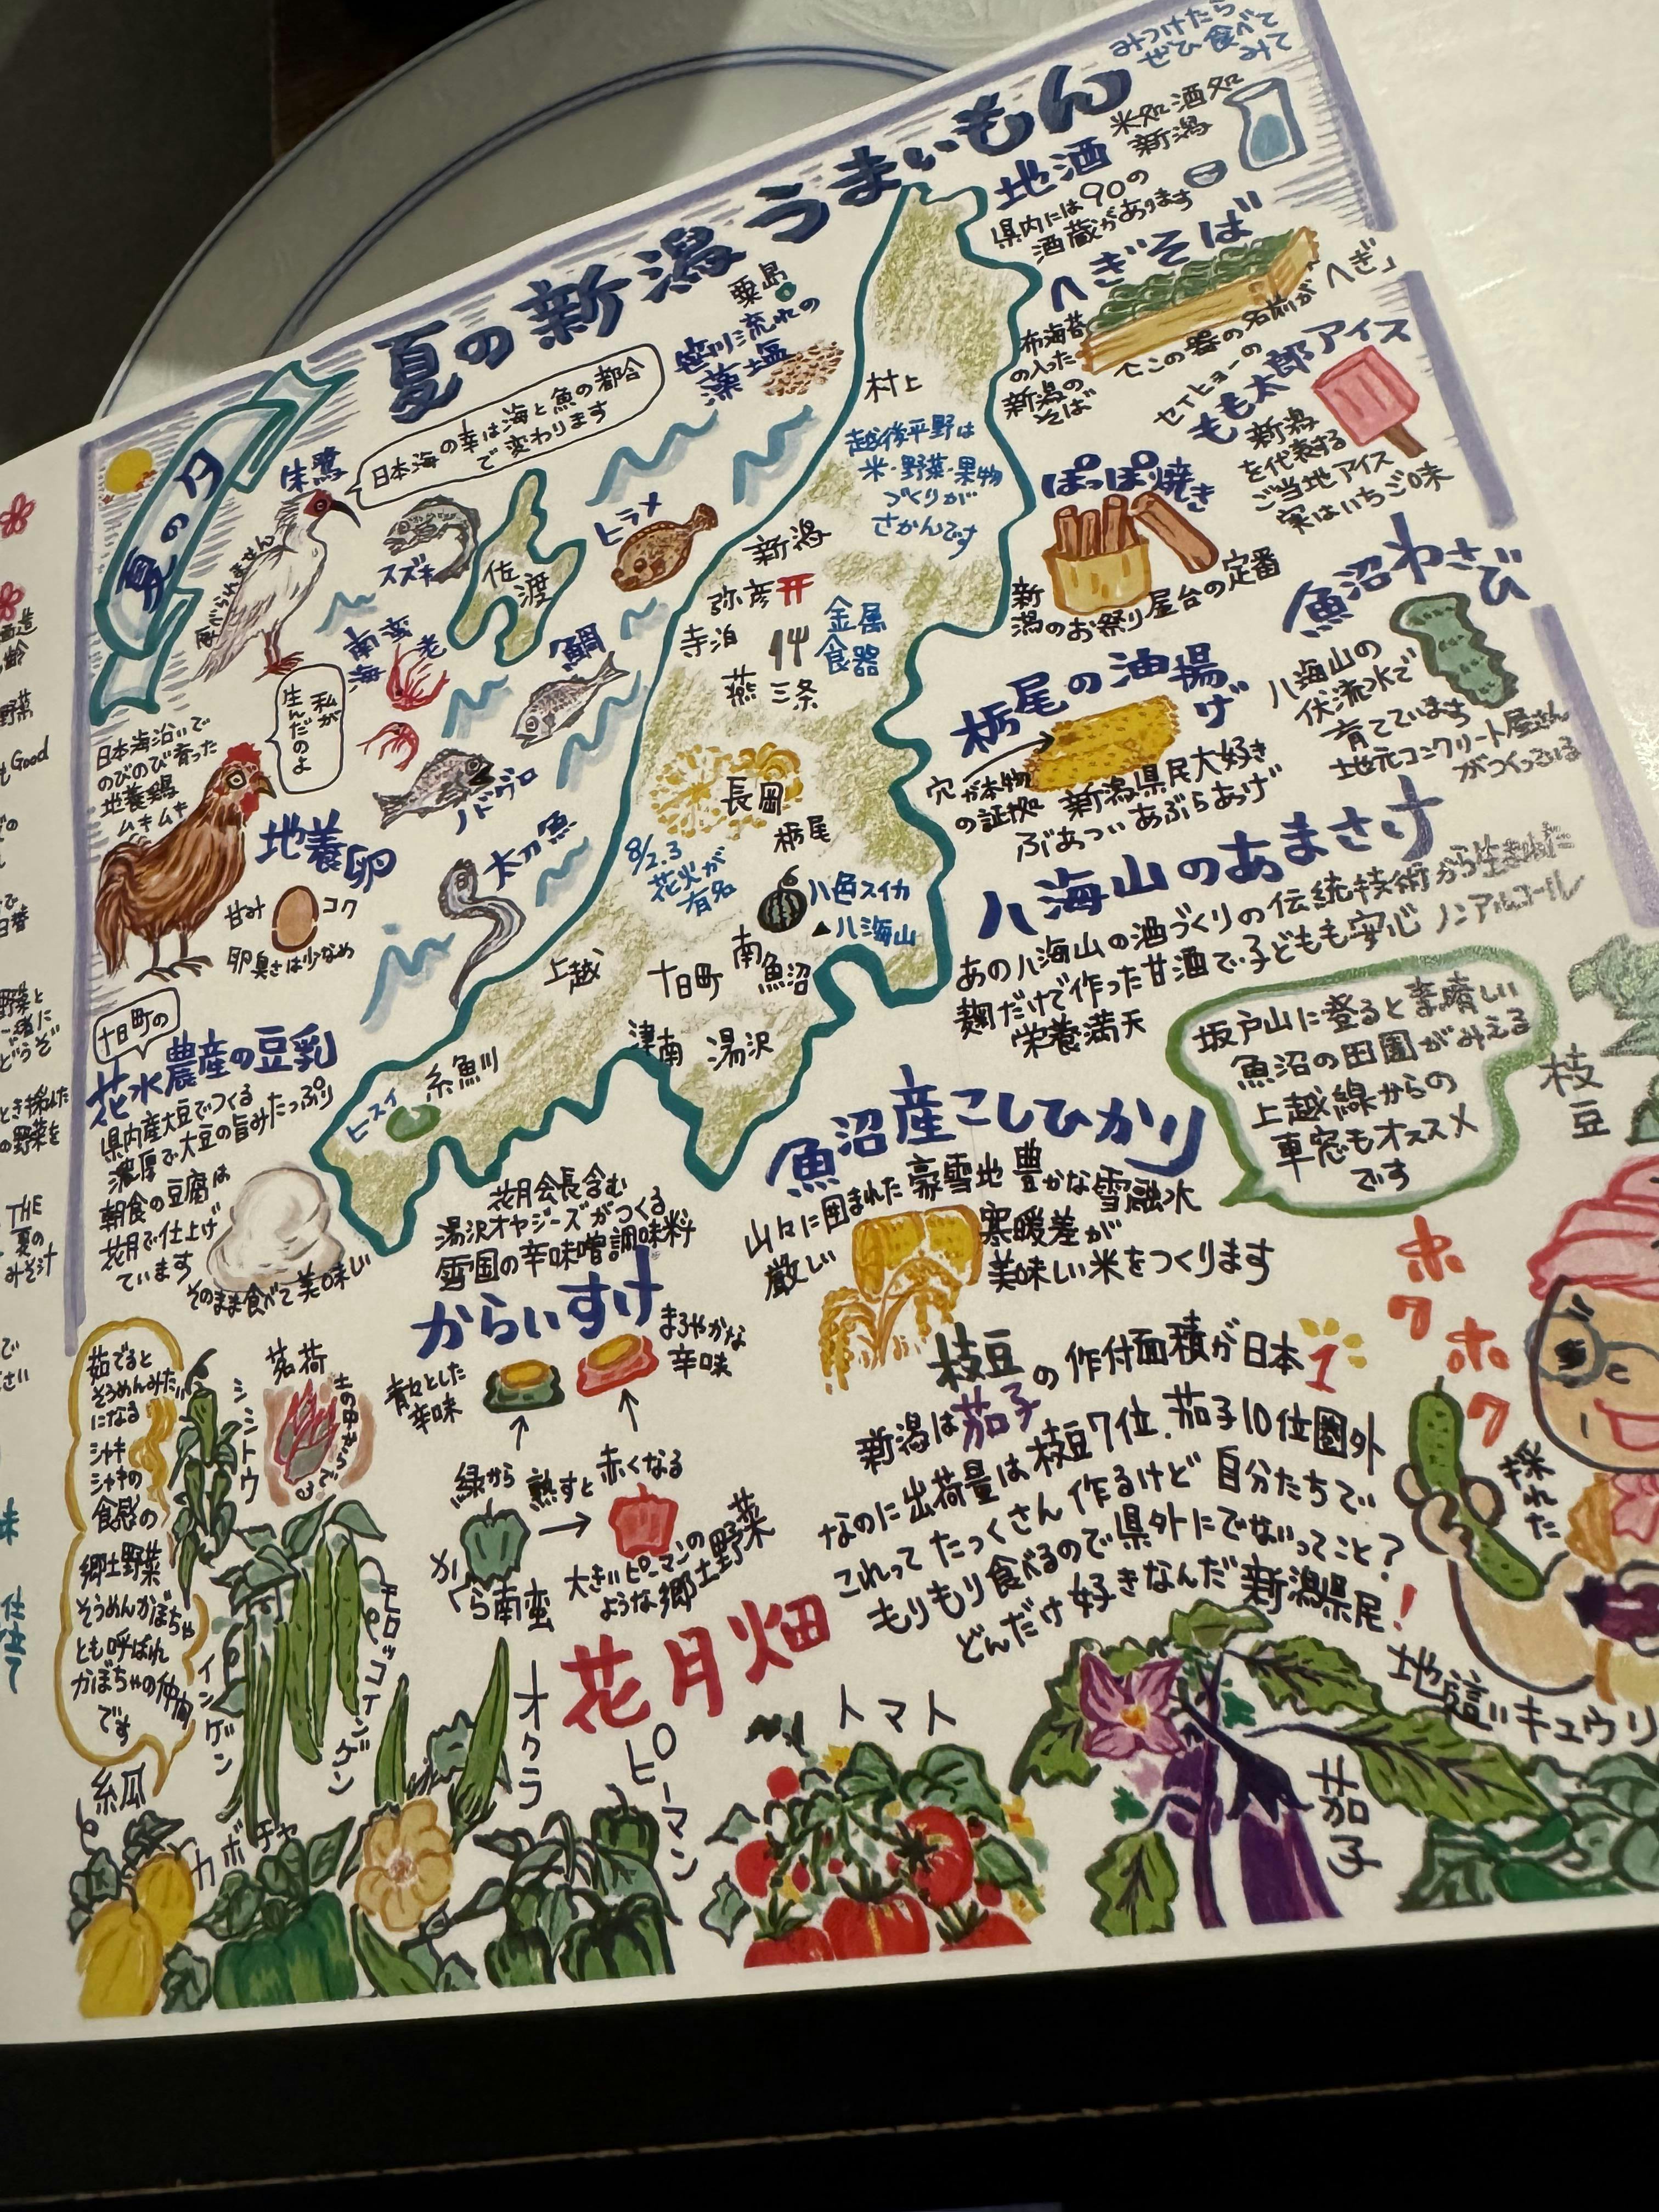 みつけたら
ぜひ食べて
みて
夏の新潟うまいもん
夏の夕
地酒
米処酒処
新潟
県内には90の
酒蔵があります
へぎそば
布海苔
の入った
新潟の
そば
この器の名前が「へぎ」
セイヒョーの
もも太郎アイス
新潟
を代表する
ご当地アイス
実はいちご味
ぽっぽ焼き
新潟のお祭り屋台の定番
魚沼わさび
八海山の
伏流水で
育てています
地元コンクリート屋さん
がつくってる
栃尾の油揚げ
穴が本物
の証拠
新潟県民大好き
ぶあついあぶらあげ
八海山のあまさけ
あの八海山の酒づくりの伝統技術から生まれた
麹だけで作った甘酒で子どもも安心 ノンアルコール
栄養満天
坂戸山に登ると素晴しい
魚沼の田園がみえる
上越線からの
車窓もオススメ
です
枝豆
粟島
笹川流れの
藻塩
日本海の幸は海と魚の都合
で変わります
朱鷺
スズキ
佐渡
ヒラメ
南蛮海老
鯛
ノドグロ
太刀魚
村上
越後平野は
米・野菜・果物
づくりが
さかんです
新潟
弥彦
寺泊
金属
食器
燕三条
長岡
栃尾
8/2.3
花火が
有名
八色スイカ
▲八海山
南魚沼
十日町
上越
津南
湯沢
糸魚川
ヒスイ
私が
生んだのよ
日本海沿いで
のびのび育った
地養鶏
ムキムキ
地養卵
甘み
コク
卵臭さは少なめ
十日町の
花水農産の豆乳
県内産大豆でつくる
濃厚で大豆の旨みたっぷり
朝食の豆腐は
花月で仕上げ
ています
そのまま食べて美味しい
花月会長含む
湯沢オヤジーズがつくる
雪国の辛味噌調味料
からいすけ
青々とした
辛味
まろやかな
辛味
緑から
熟すと
赤くなる
かぐら南蛮
大きいピーマンの
ような郷土野菜
魚沼産こしひかり
山々に囲まれた豪雪地 豊かな雪融水
厳しい
寒暖差が
美味しい米をつくります
枝豆の作付面積が日本1
新潟は茄子
なのに出荷量は枝豆7位、茄子10位圏外
これって たっくさん作るけど 自分たちで
もりもり食べるので県外にでないってこと?
どんだけ好きなんだ新潟県民!
ホクホク
採れた
地這いキュウリ
茹でると
そうめんみたい
になる
シャキ
シャキの
食感の
郷土野菜
そうめんかぼちゃ
とも呼ばれ
かぼちゃの仲間
です
糸瓜
シシトウ
茗荷
インゲン
モロッコインゲン
カボチャ
オクラ
花月畑
ピーマン
トマト
茄子
Good
野菜
THE
夏の
みそ汁